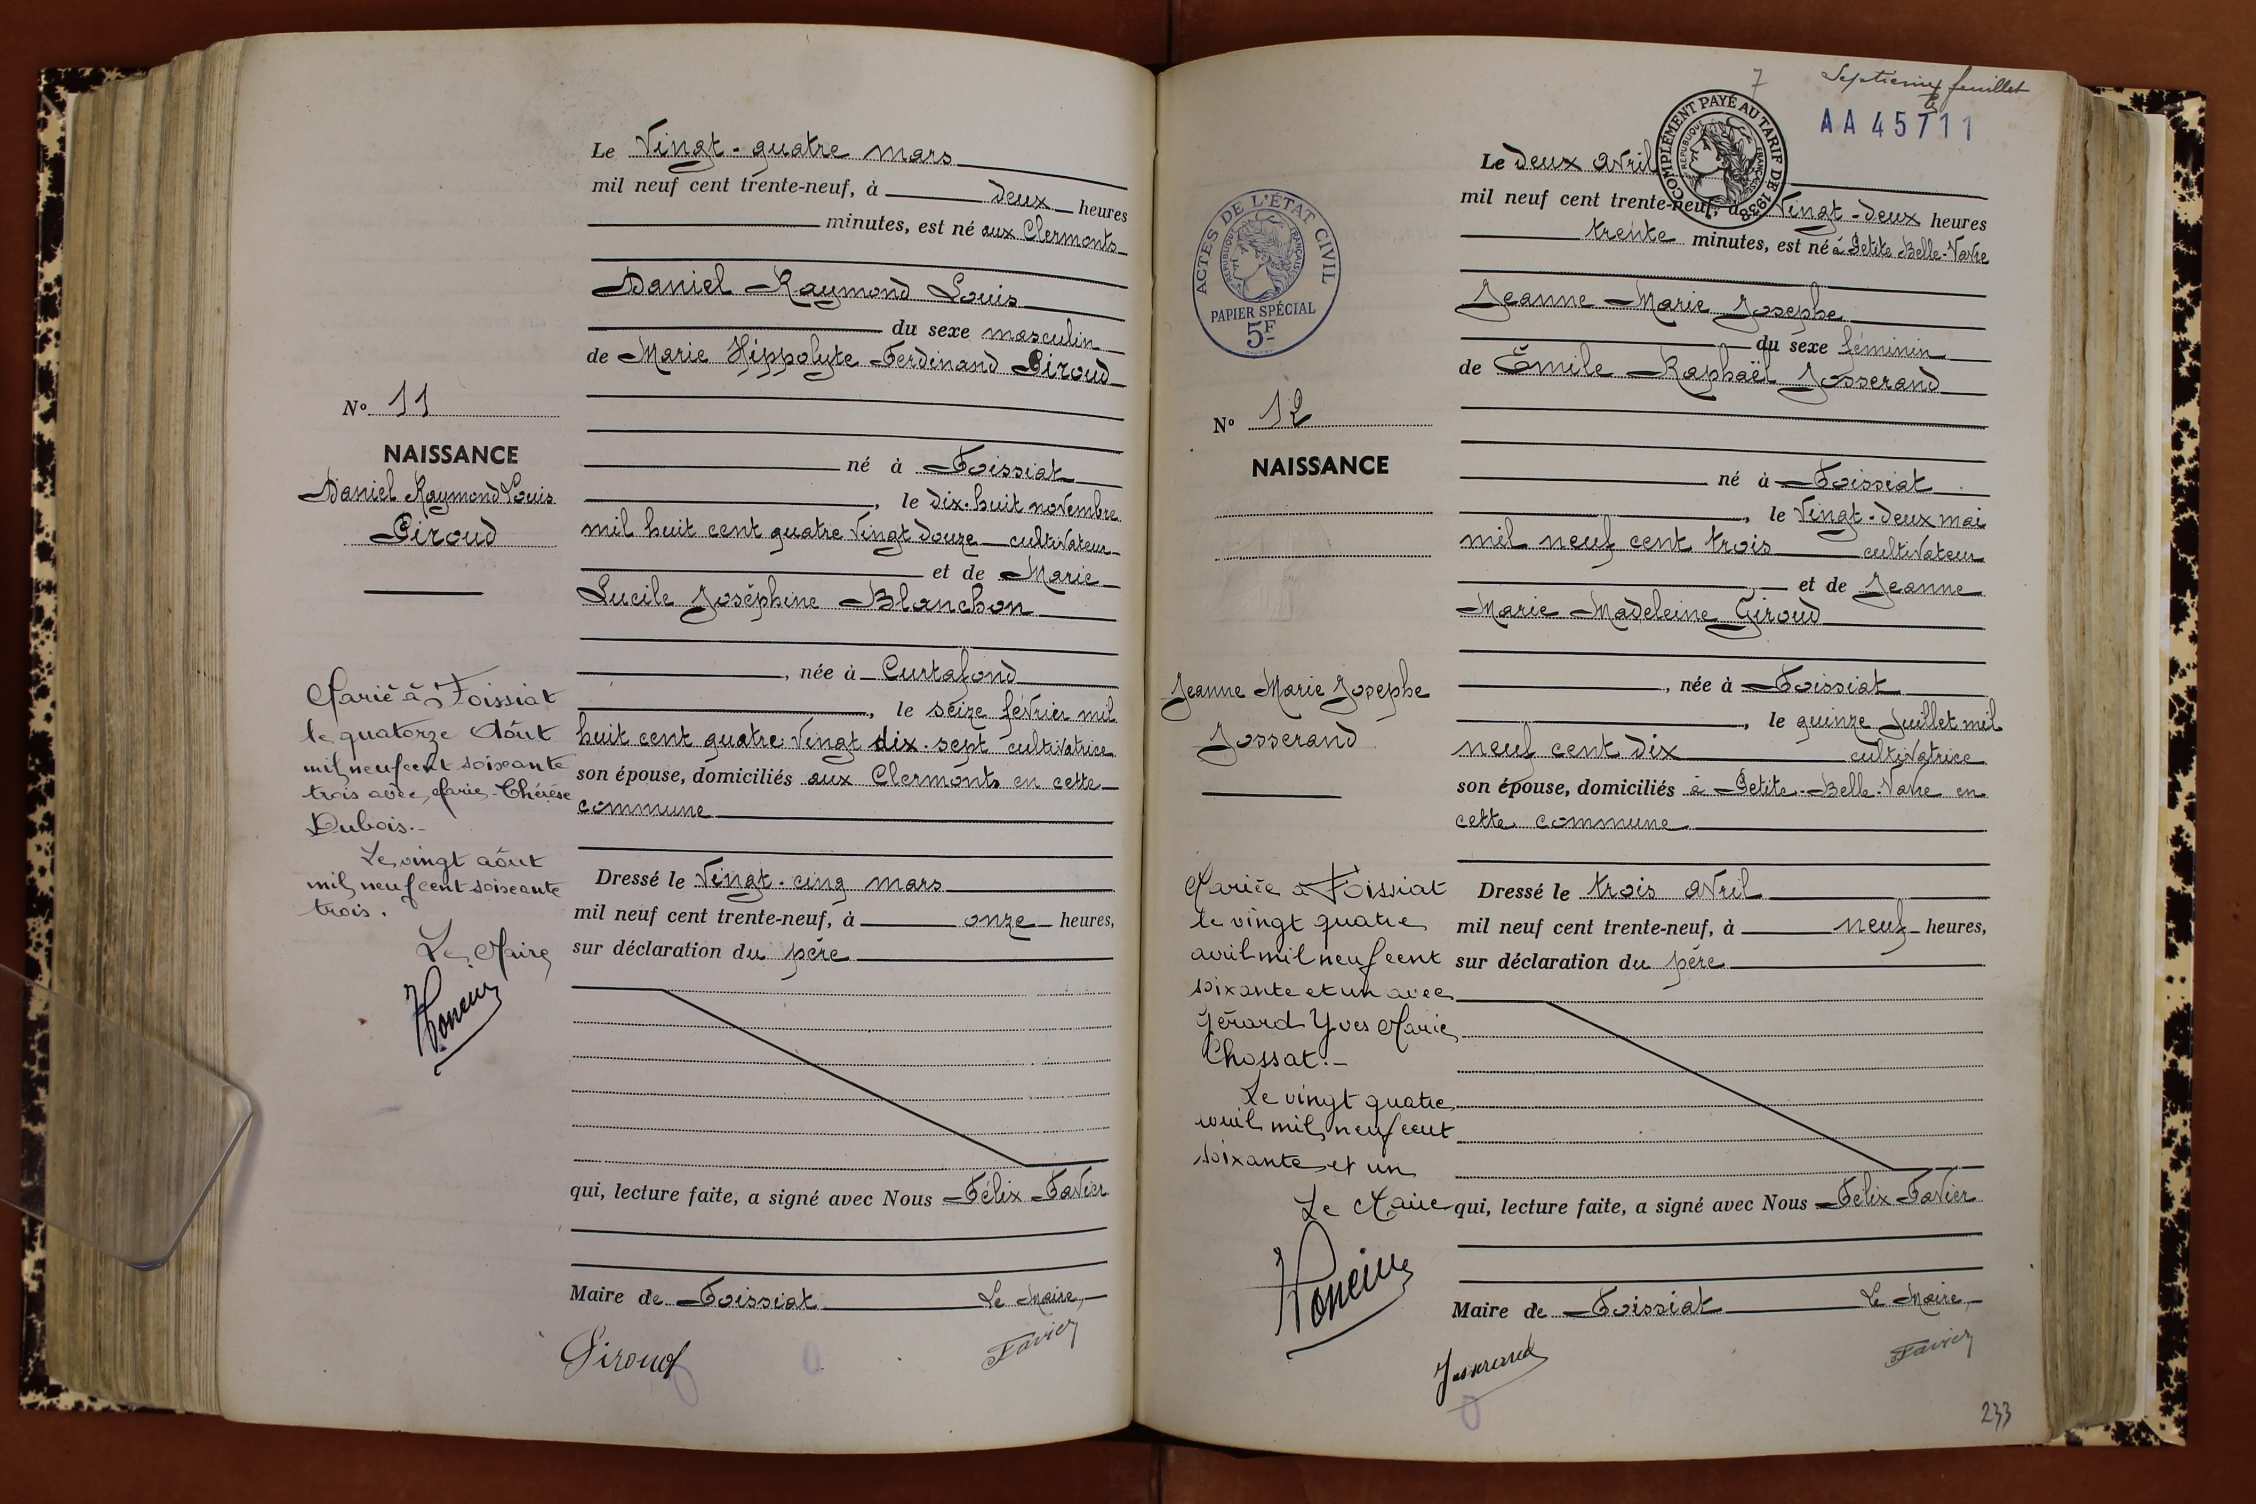 Le Vingt-quatre mars
mil neuf cent trente-neuf, à deux heures
minutes, est né aux Clermonts
Daniel Raymond Louis
du sexe masculin
de Marie Hippolyte Ferdinand Giroud
né à Foissiat
, le dix-huit novembre
mil huit cent quatre vingt douze cultivateur
et de Marie
Lucile Joséphine Blanchon
, née à Curtafond
, le seize février mil
huit cent quatre vingt dix-sept cultivatrice
son épouse, domiciliés aux Clermonts en cette
commune
Dressé le Vingt-cinq mars
mil neuf cent trente-neuf, à onze heures,
sur déclaration du père
qui, lecture faite, a signé avec Nous Félix Favier
Maire de Foissiat Le Maire,
Giroud Favier
No 11
NAISSANCE
Daniel Raymond Louis
Giroud
Marié à Foissiat
le quatorze Août
mil neuf cent soixante
trois avec Marie-Thérèse
Dubois.-
Le vingt août
mil neuf cent soixante
trois.
Le Maire
7 Septième feuillet
AA 45711
COMPLÉMENT PAYÉ AU TARIF DE 1938
RÉPUBLIQUE FRANÇAISE
ACTES DE L'ÉTAT CIVIL
RÉPUBLIQUE FRANÇAISE
PAPIER SPÉCIAL
5F
Le deux avril
mil neuf cent trente-neuf, à Vingt-deux heures
trente minutes, est né à Petite Belle-Vavre
Jeanne Marie Josephe
du sexe féminin
de Émile Raphaël Josserand
né à Foissiat
, le Vingt-deux mai
mil neuf cent trois cultivateur
et de Jeanne
Marie Madeleine Giroud
, née à Foissiat
, le quinze Juillet mil
neuf cent dix cultivatrice
son épouse, domiciliés à Petite-Belle-Vavre en
cette commune
Dressé le trois avril
mil neuf cent trente-neuf, à neuf heures,
sur déclaration du père
qui, lecture faite, a signé avec Nous Félix Favier
Maire de Foissiat Le Maire,
Josserand Favier
No 12
NAISSANCE
Jeanne Marie Josephe
Josserand
Mariée à Foissiat
le vingt quatre
avril mil neuf cent
soixante et un avec
Gérard Yves Marie
Chossat.-
Le vingt quatre
avril mil neuf cent
soixante et un
Le Maire
233